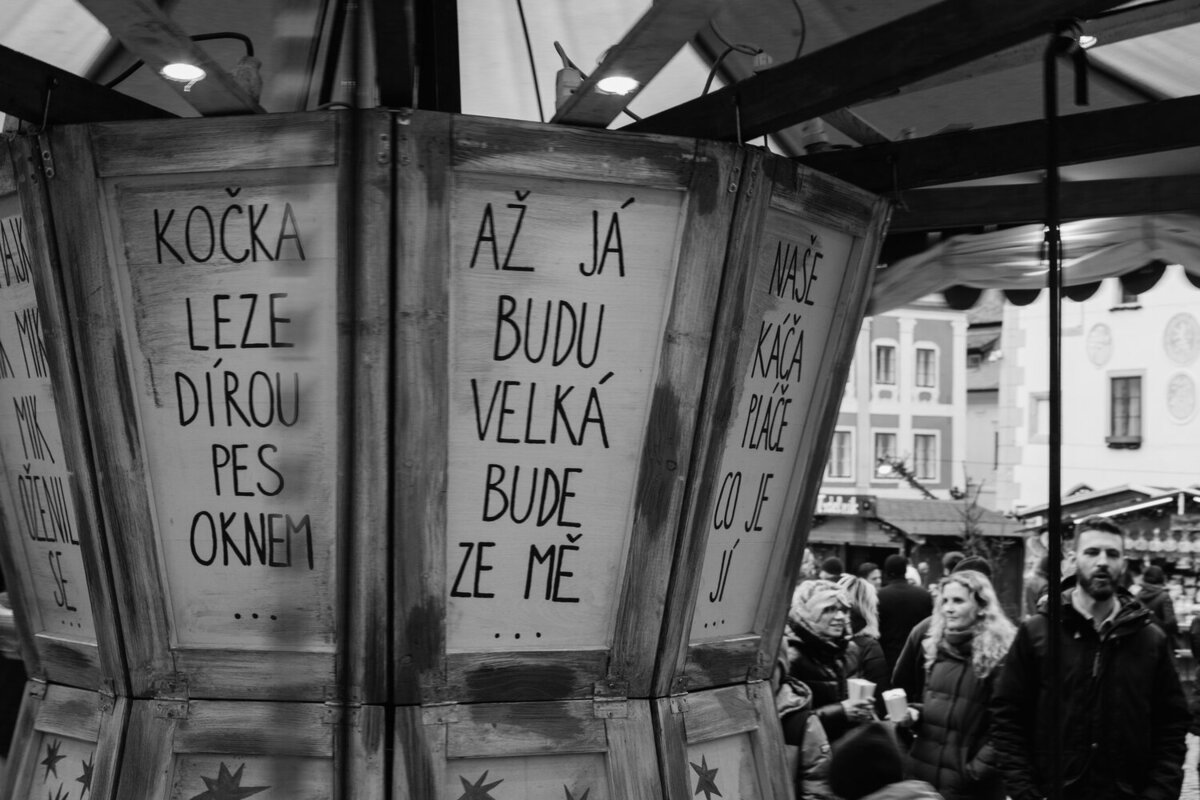 MIK
MIK
OŽENIL
SE
KOČKA
LEZE
DÍROU
PES
OKNEM
...
AŽ JÁ
BUDU
VELKÁ
BUDE
ZE MĚ
...
NAŠE
KÁČA
PLÁČE
CO JE
JÍ
...